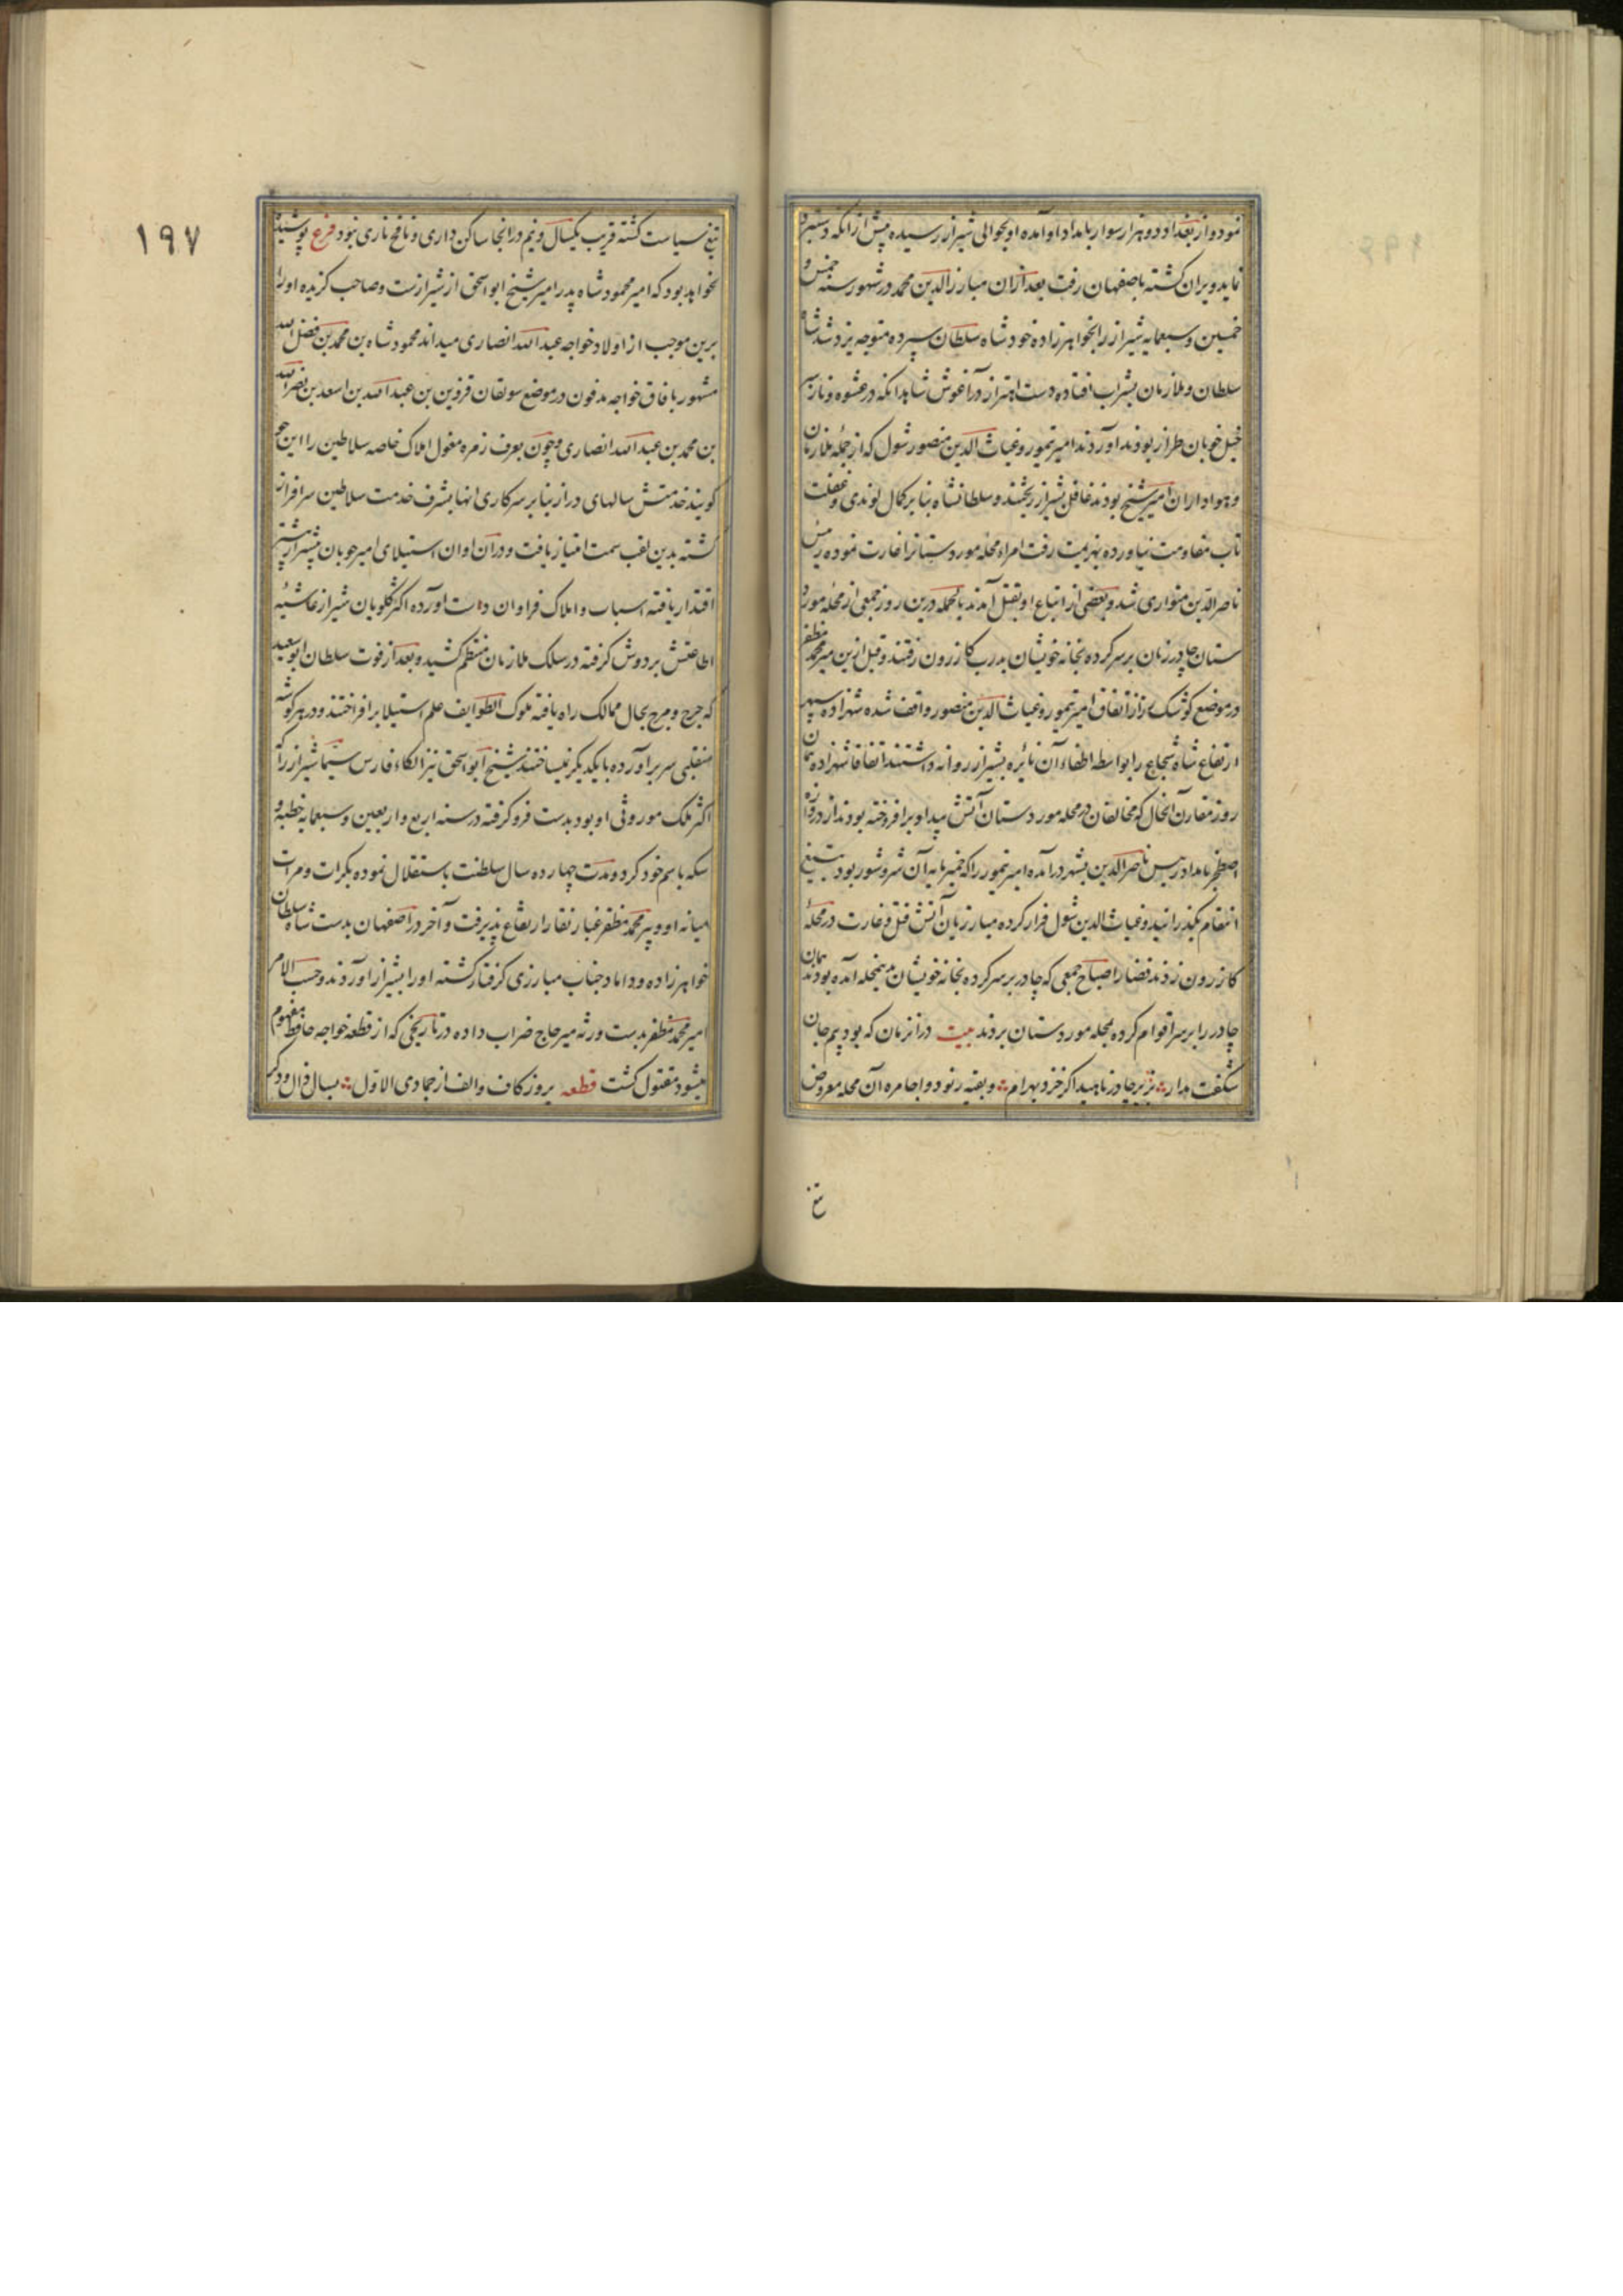 نمود و از بغداد دو هزار سوار بامداد او آمده او بحوالی شیراز رسیده پیش از انکه دستبرد
نماید ویران کشته باصفهان رفت بعد ازان مبارزالدین محمد در شهور سنه خمس و
خمسین و سبعمایه شیراز را بخواهرزاده خود شاه سلطان سپرده متوجه یزد شد شاه
سلطان و ملازمان بشراب افتاده دست اهتزاز در آغوش شاهدانکه در عشوه و ناز
خیل خوبان طراز بودند آوردند امیر تیمور و غیاث الدین منصور شول که از جمله ملازمان
و هواداران امیر شیخ بودند غافل بشیراز ریختند و سلطانشاه بنا بر کمال لوندی و غفلت
تاب مقاومت نیاورده بهزیمت رفت امراء محله موردستانرا غارت نموده رئیس
ناصر الدین متواری شد و بعضی از اتباع او بقتل آمدند بالجمله درین روز جمعی از محله مورد
ستان چادر زنان بر سر کرده بخانه خویشان بدرب کازرون رفتند و قبل ازین میر محمد مظفر
در موضع کوشک زر از اتفاق امیر تیمور و غیاث الدین منصور واقف شده شهزاده سپهر
ارتفاع شاه شجاع را بواسطه اطفاء آن نایره بشیراز روانه داشتند اتفاقا شهزاده همان
روز مقارن آنحال که مخالفان در محله موردستان آتش بیداد بر افروخته بودند از دروازه
اصطخر بامداد رئیس ناصر الدین بشهر درآمده امیر تیمور را که خمیر مایه آن شر و شور بود بتیغ
انتقام بکذرانید و غیاث الدین شول فرار کرده مبارزیان آتش قتل و غارت در محله
کازرون زدند قضا را صباح جمعی که چادر بر سر کرده بخانه خویشان بدینمحله آمده بودند همان
چادر را بر سر اقوام کرده بمحله موردستان بردند بیت در انزمان که بود بیم جان
شکفت مدار بزیر چادر ناهید اکر خزد بهرام و بقیه رنود و اجامره آن محله معروض
تیغ
۱۹۷
تیغ سیاست کشته قریب یکسال و نیم در انجا ساکن داری و نافخ ناری نبود فرع پوشیده
نخواهد بود که امیر محمود شاه پدر امیر شیخ ابو اسحق از شیرازست و صاحب کزیده او را
برین موجب از اولاد خواجه عبد الله انصاری میداند محمود شاه بن محمد بن فضل الله
مشهور بافاق خواجه مدفون در موضع سولقان قزوین بن عبد الله بن اسعد بن نصر الله
بن محمد بن عبد الله انصاری و چون بعرف زمره مغول املاک خاصه سلاطین را اینجو
کویند خدمتش سالهای دراز بنا بر سرکاری انها بشرف خدمت سلاطین سرافراز
کشته بدین لقب سمت امتیاز یافت و در آن اوان استیلای امیر چوبان بیشتر از پیشتر
اقتدار یافته اسباب و املاک فراوان دست اورده اکثر کلویان شیراز غاشیه
اطاعتش بر دوش کرفته در سلک ملازمان منتظم کشیده و بعد از فوت سلطان ابو سعید
که هرج و مرج بحال ممالک راه یافته ملوک الطوایف علم استیلا برافراختند و در هر کوشه
متغلبی سر برآورده با یکدیکر نمیساختند شیخ ابو اسحق نیز الکاء فارس سیما شیراز را که
اکثر ملک موروثی او بود بدست فرو کرفته در سنه اربع و اربعین و سبعمایه خطبه و
سکه باسم خود کرد و مدت چهارده سال سلطنت باستقلال نموده بکرات و مرات
میانه او و میر محمد مظفر غبار نقار ارتفاع پذیرفت و آخر در اصفهان بدست شاه سلطان
خواهرزاده و داماد جناب مبارزی کرفتار کشته او را بشیراز آوردند و حسب الامر
امیر محمد مظفر بدست ورثه میر حاج ضراب داده در تاریخی که از قطعه خواجه حافظ مفهوم
میشود مقتول کشت قطعه بروز کاف و الف از جمادی الاول بسال ذال و دکر